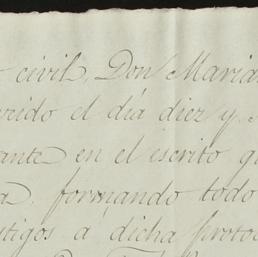 civil, Don Maria
el día diez y
ante en el escrito q
a formando todo
tigos a dicha proto